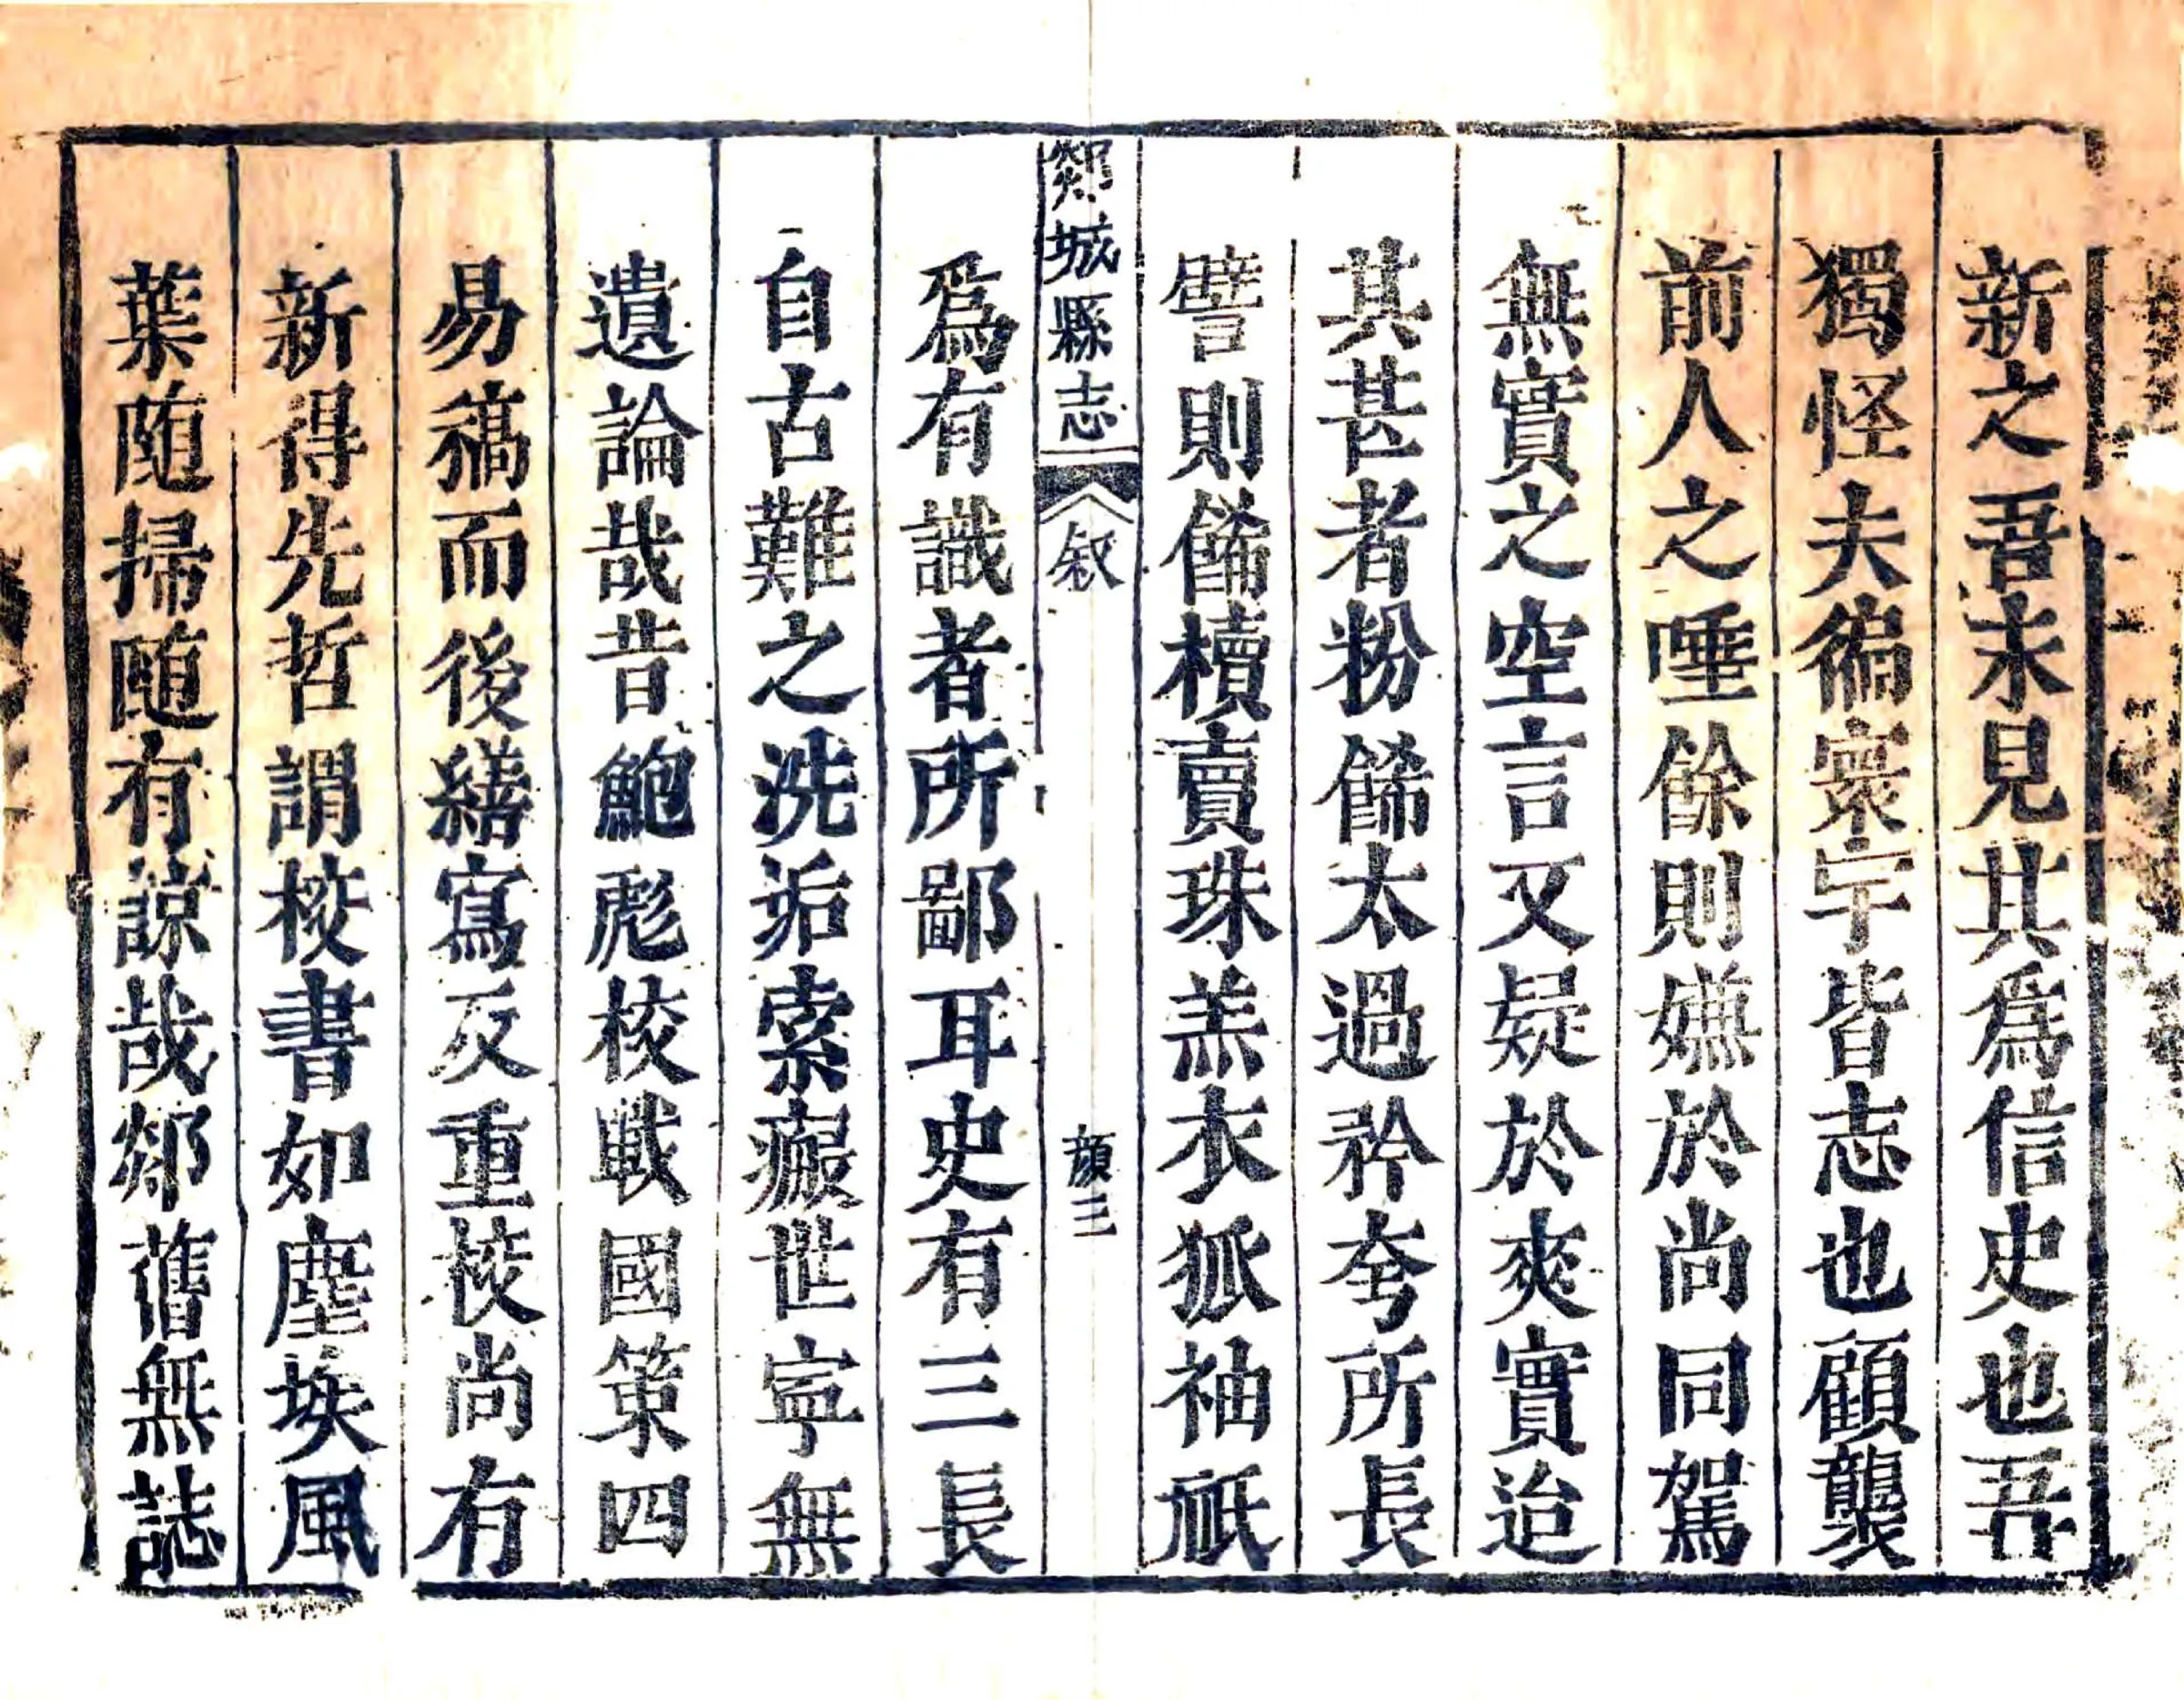 新之吾未見其爲信史也吾
獨怪夫徧寰宇皆志也顧襲
前人之唾餘則嫌於尚同駕
無實之空言又疑於爽實迨
其甚者粉餙太過矜夸所長
譬則餙櫝賣珠羔衣狐袖祇
郯城縣志
叙
顔三
爲有識者所鄙耳史有三長
自古難之洗垢索瘢世寧無
遺論哉昔鮑彪校戰國策四
易稿而後繕寫反重校尚有
新得先哲謂校書如塵埃風
葉随掃随有諒哉郯舊無誌